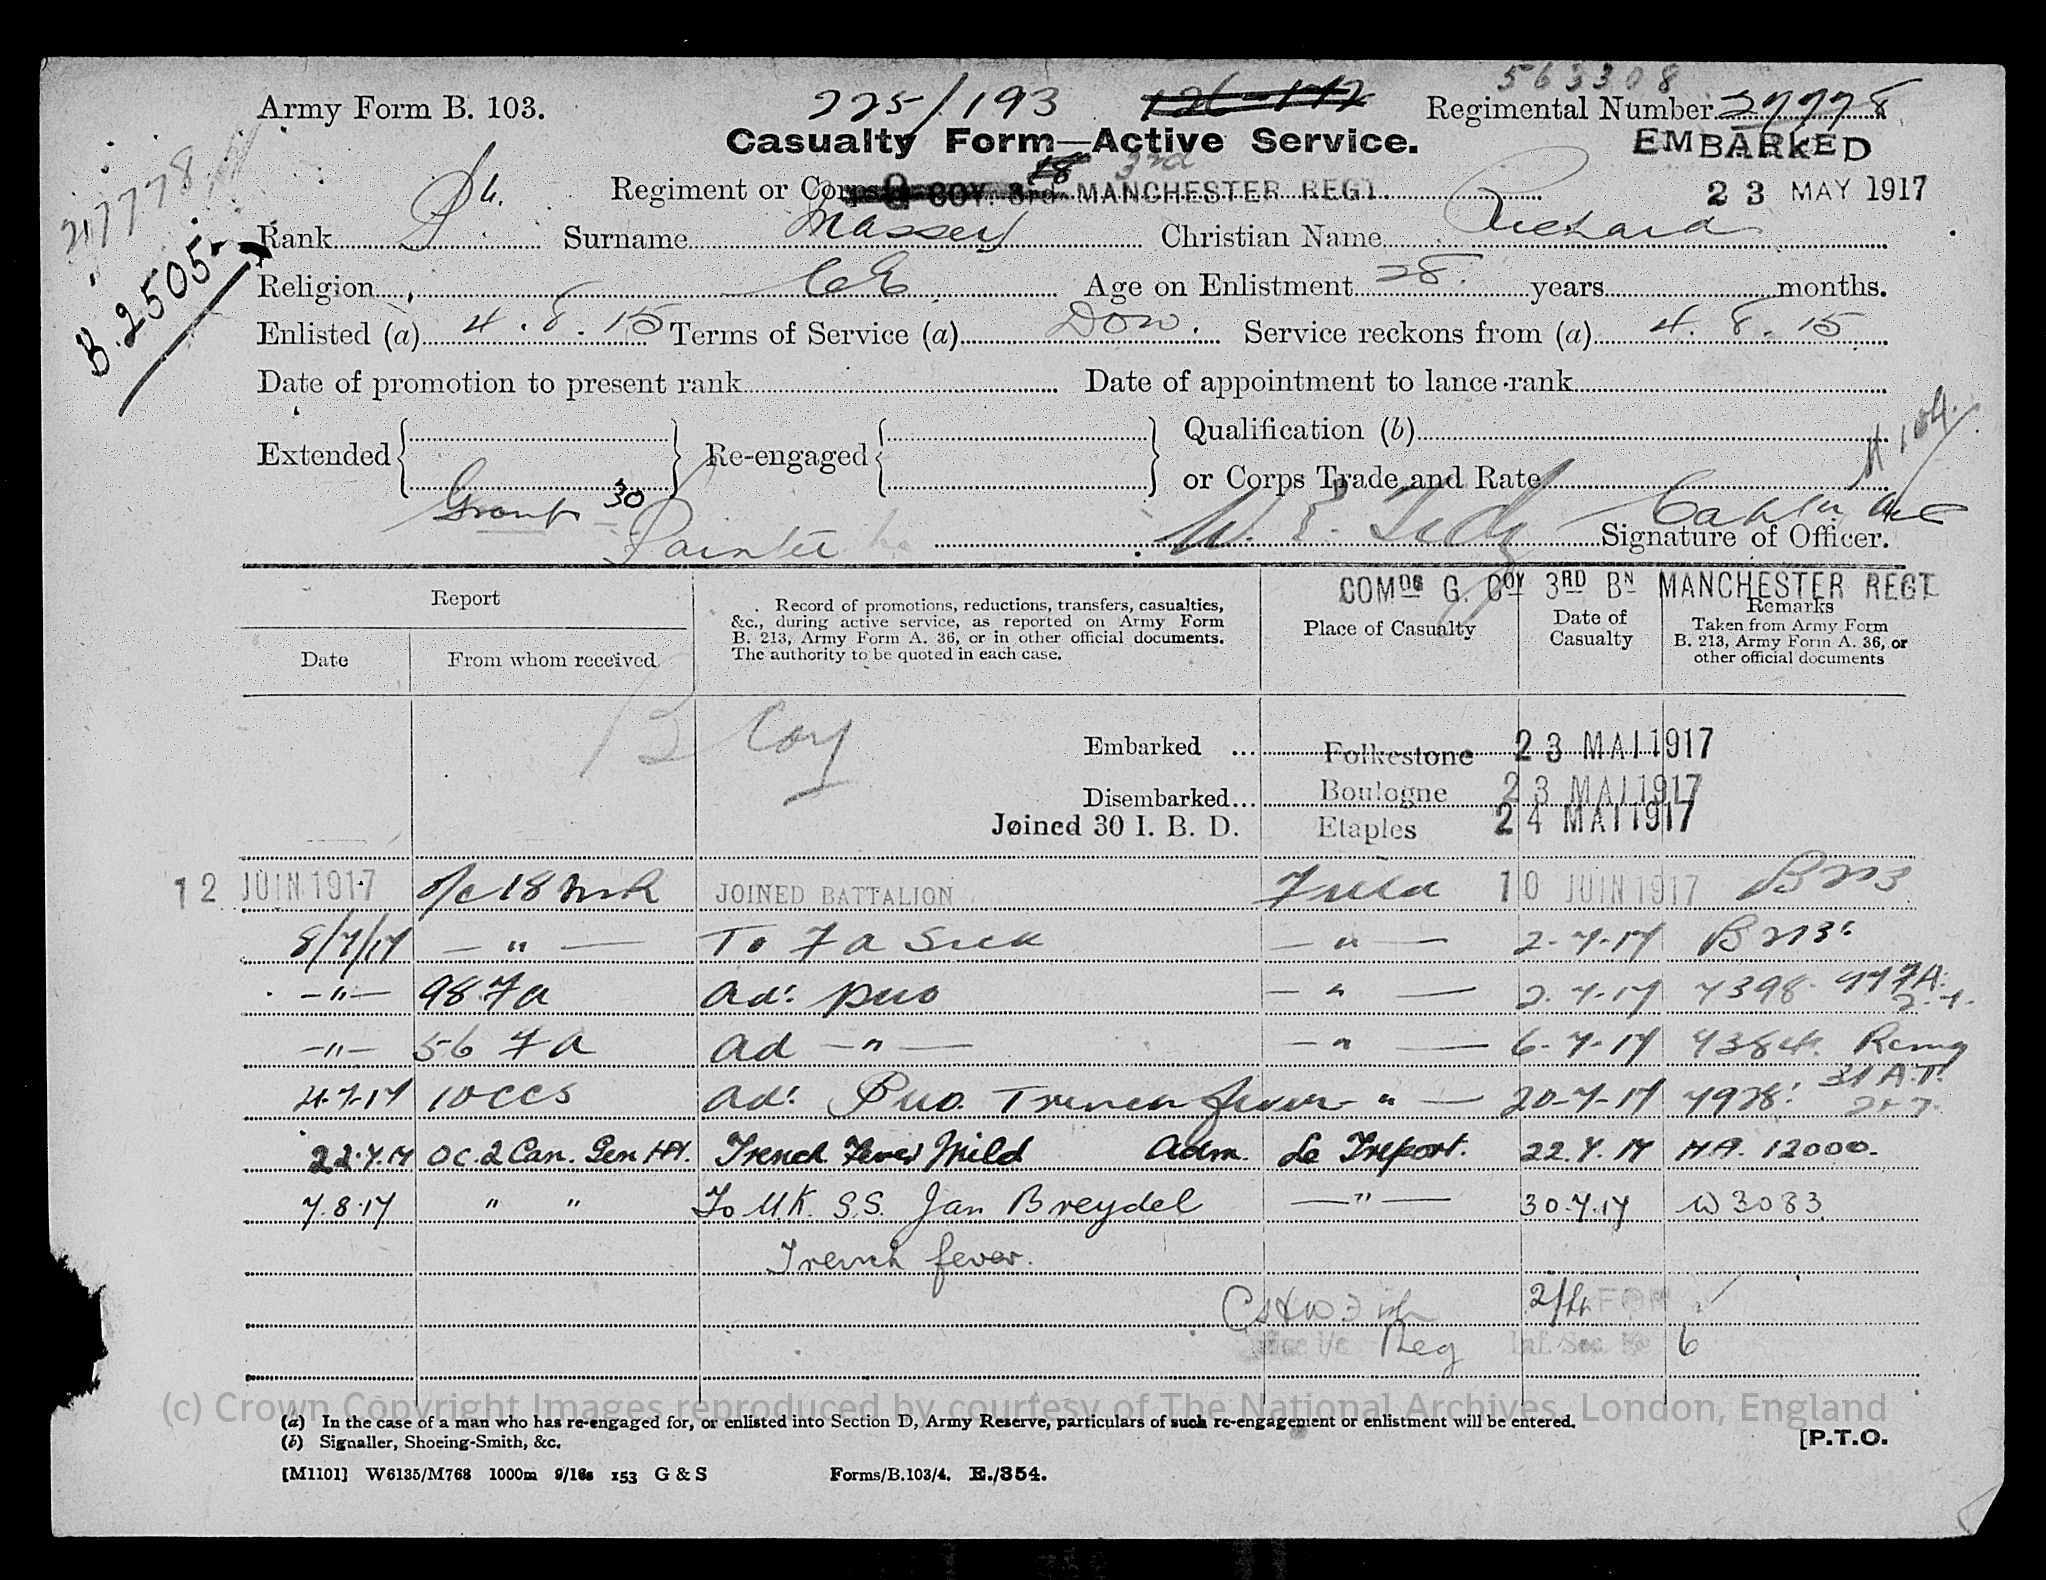 563308
Army Form B. 103. 225/193 Regimental Number 27778
Casualty Form—Active Service. EMBARKED
Regiment or Corps 18 3rd MANCHESTER REGT 23 MAY 1917
27778
Rank Pte. Surname Massey Christian Name Richard
B.2505
Religion C of E Age on Enlistment 28 years months.
Enlisted (a) 4.8.15 Terms of Service (a) Dow. Service reckons from (a) 4.8.15
Date of promotion to present rank Date of appointment to lance-rank
Extended Re-engaged Qualification (b)
or Corps Trade and Rate
Group 30
Painter Signature of Officer.
COMDG G. COY 3RD BN MANCHESTER REGT
Report Record of promotions, reductions, transfers, casualties, &c., during active service, as reported on Army Form B. 213, Army Form A. 36, or in other official documents. The authority to be quoted in each case. Place of Casualty Date of Casualty Remarks Taken from Army Form B. 213, Army Form A. 36, or other official documents
Date From whom received
B Coy
Embarked ... Folkestone 23 MAI 1917
Disembarked... Boulogne 23 MAI 1917
Joined 30 I. B. D. Etaples 24 MAI 1917
12 JUIN 1917 o/c 18 MR JOINED BATTALION Field 10 JUIN 1917 B213
8/7/17 — " — To FA Sick — " — 2-7-17 B213
— " — 98 FA ad. PUO — " — 2.7.17 7398
— " — 56 FA ad — " — — " — 6-7-17 7384.
10 CCS ad. PUO. Trench fever — " — 20-7-17 7978
22.7.17 OC. 2 Can. Gen Hpl. Trench Fever Mild Adm. Le Treport. 22.7.17 HA. 12000.
7.8.17 " " To U.K. S.S. Jan Breydel — " — 30.7.17 W 3083
Trench fever.
Reg Inf. Sec. No 6
(c) Crown Copyright Images reproduced by courtesy of The National Archives, London, England
(a) In the case of a man who has re-engaged for, or enlisted into Section D, Army Reserve, particulars of such re-engagement or enlistment will be entered.
(b) Signaller, Shoeing-Smith, &c.
[P.T.O.
[M1101] W6135/M768 1000m 9/16s 153 G & S Forms/B.103/4. E./354.